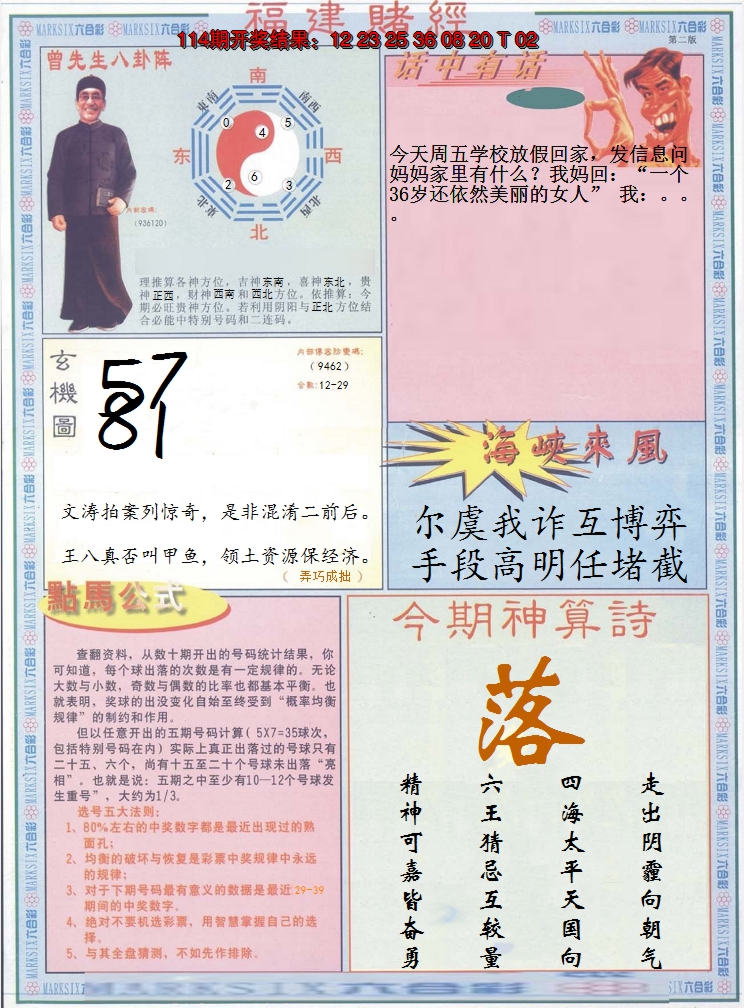 福建賭經
114期开奖结果：12 23 25 36 08 20 T 02
第二版
MARKSIX六合彩
曾先生八卦阵
南
东南
南西
东
西
東北
北西
北
0
5
4
6
2
3
内部密碼:
(936120)
理推算各神方位，吉神东南，喜神东北，贵
神正西，财神西南和西北方位。依推算：今
期必旺贵神方位。若利用阴阳与正北方位结
合必能中特别号码和二连码。
话中有话
今天周五学校放假回家，发信息问
妈妈家里有什么？我妈回：“一个
36岁还依然美丽的女人” 我：。。。
。
玄機圖
57
81
(9462)
合数:12-29
文涛拍案列惊奇，是非混淆二前后。
王八真否叫甲鱼，领土资源保经济。
（ 弄巧成拙 ）
海峽來風
尔虞我诈互博弈
手段高明任堵截
點馬公式
查翻资料，从数十期开出的号码统计结果，你
可知道，每个球出落的次数是有一定规律的。无论
大数与小数，奇数与偶数的比率也都基本平衡。也
就表明，奖球的出没变化自始至终受到“概率均衡
规律”的制约和作用。
但以任意开出的五期号码计算( 5X7=35球次，
包括特别号码在内) 实际上真正出落过的号球只有
二十五、六个，尚有十五至二十个号球未出落“亮
相”。也就是说：五期之中至少有10—12个号球发
生重号”，大约为1/3。
选号五大法则：
1、80%左右的中奖数字都是最近出现过的熟
面孔；
2、均衡的破坏与恢复是彩票中奖规律中永远
的规律；
3、对于下期号码最有意义的数据是最近29-39
期间的中奖数字。
4、绝对不要机选彩票，用智慧掌握自己的选
择。
5、与其全盘猜测，不如先作排除。
今期神算詩
落
走出阴霾向朝气
四海太平天国向
六王猜忌互较量
精神可嘉皆奋勇